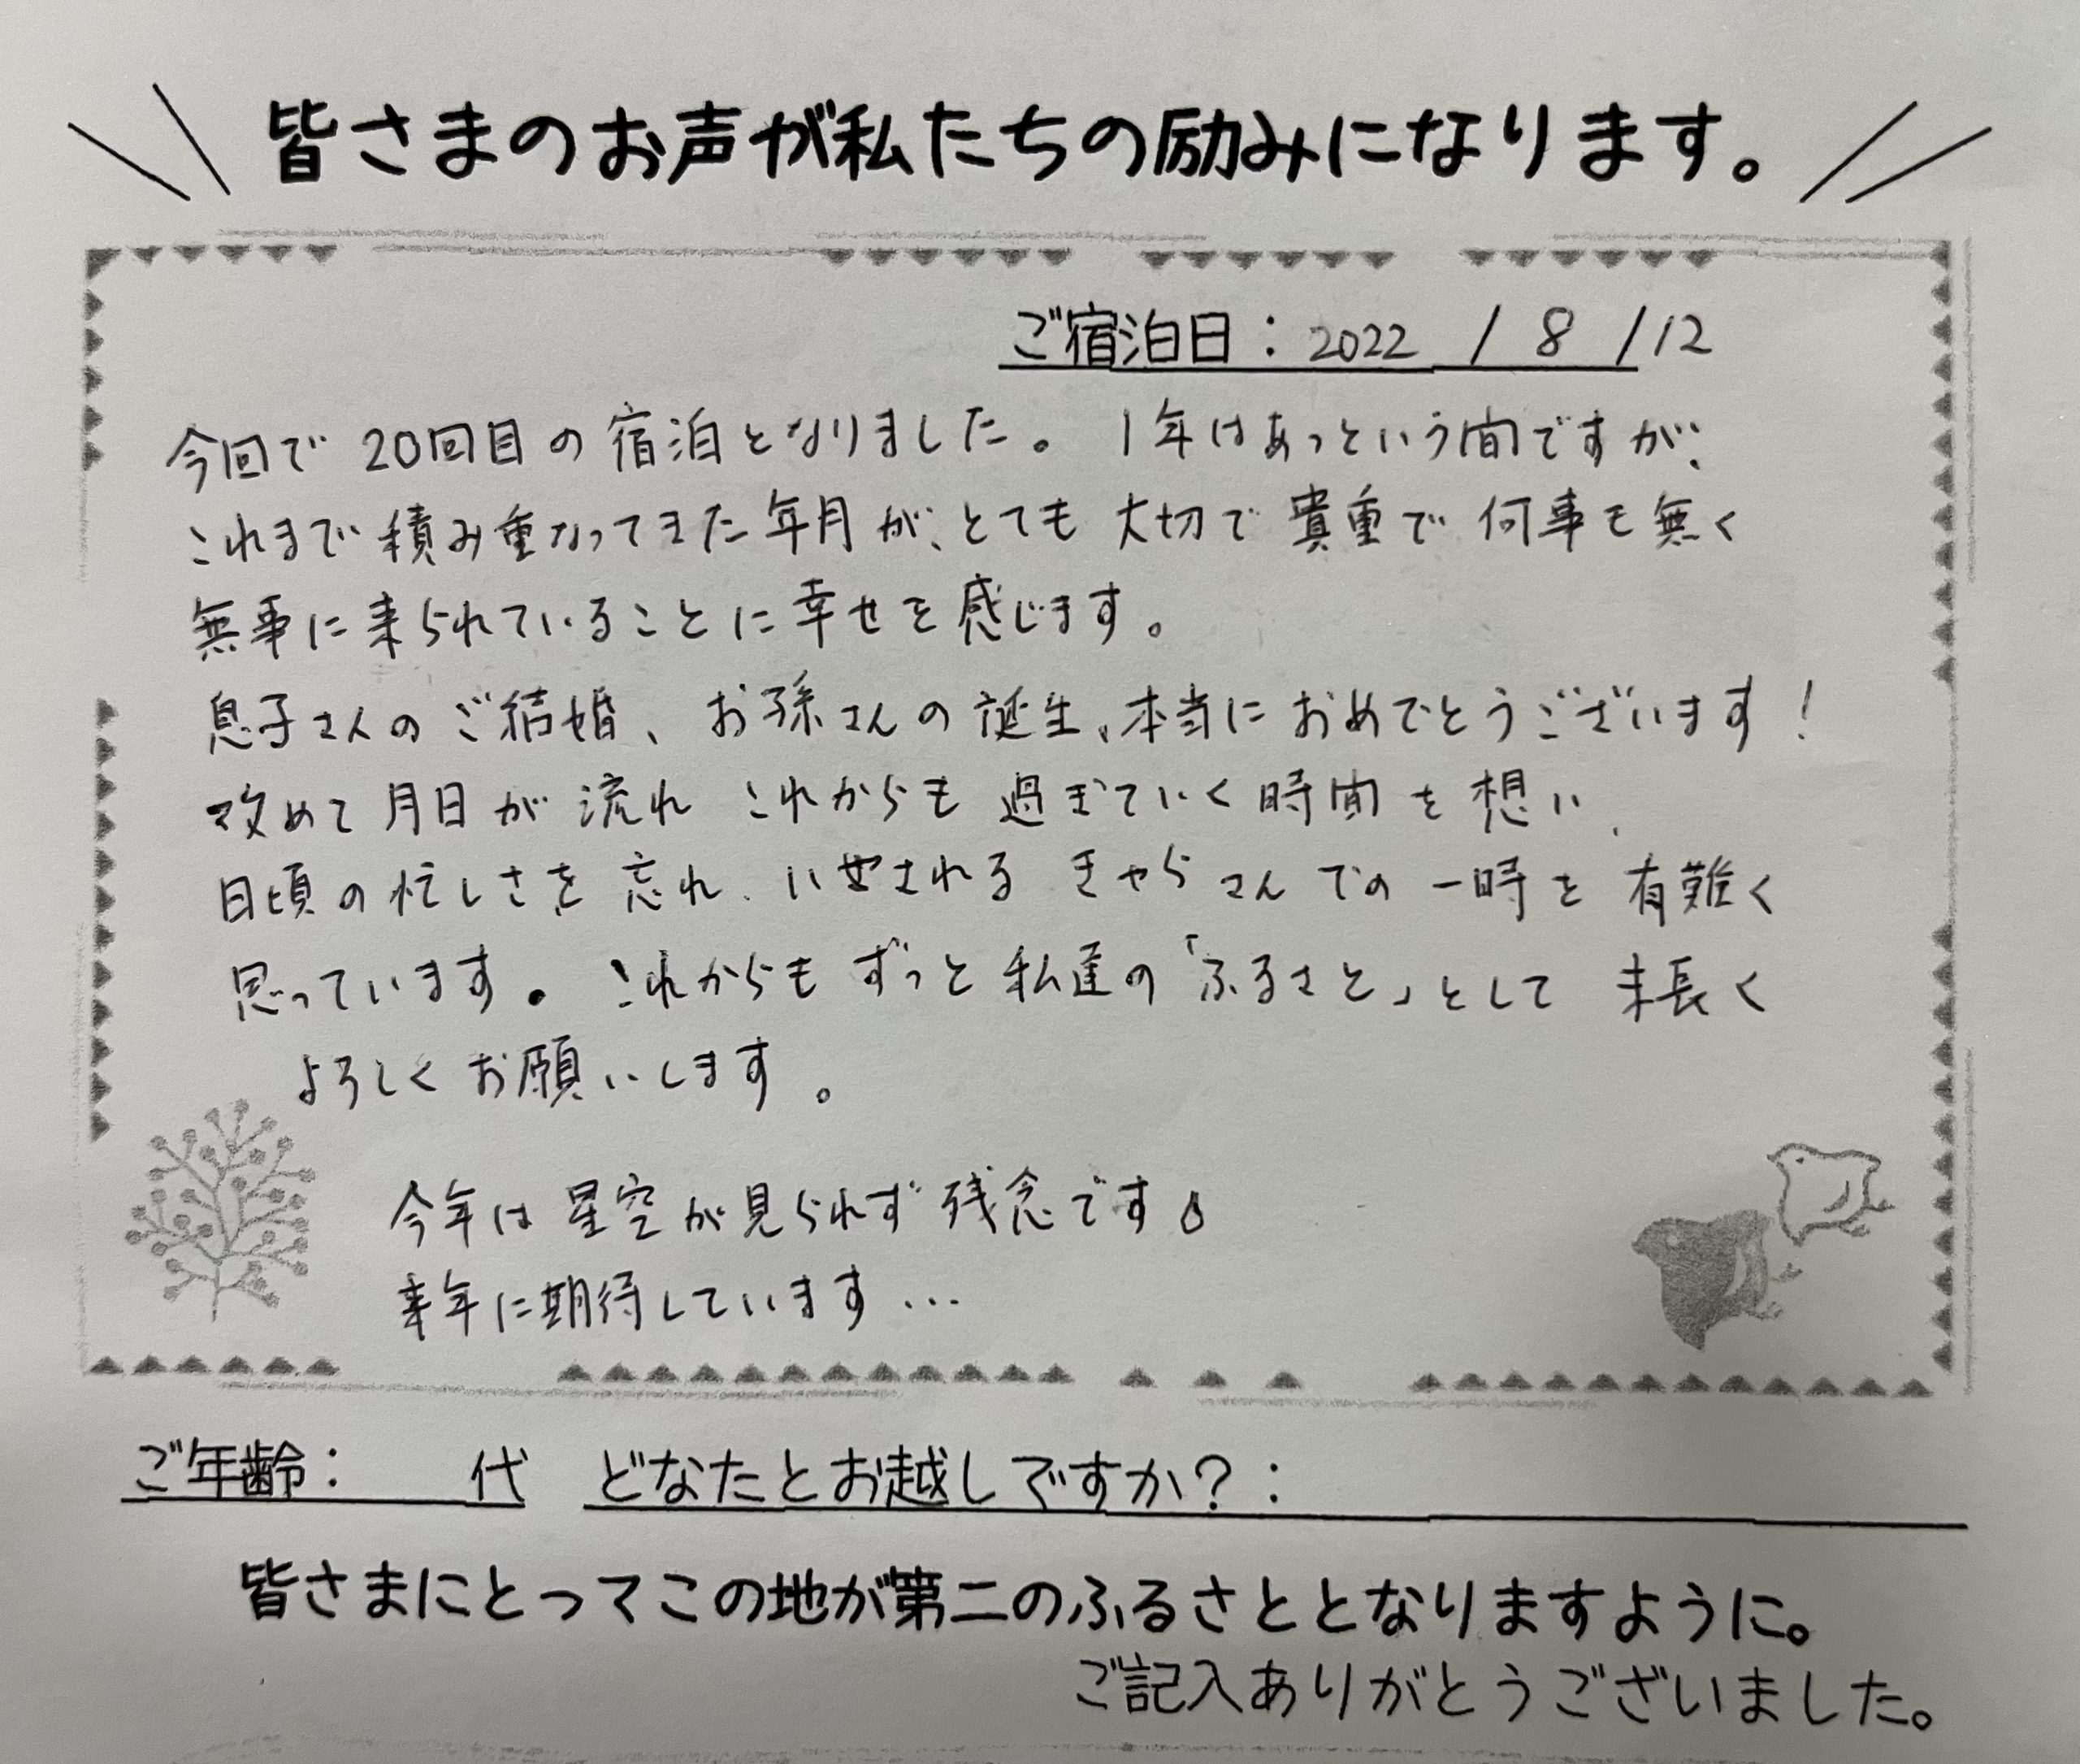 皆さまのお声が私たちの励みになります。
ご宿泊日：2022 / 8 /12
今回で 20回目の宿泊となりました。 1年はあっという間ですが、
これまで積み重なってきた年月が、とても 大切で 貴重で 何事も無く
無事に来られていることに幸せを感じます。
息子さんのご結婚、お孫さんの誕生、本当におめでとうございます！
改めて月日が流れ これからも過ぎていく時間を想い、
日頃の忙しさを忘れ、いやされる きゃらさんでの一時を有難く
思っています。これからもずっと私達の「ふるさと」として末長く
よろしくお願いします。
今年は星空が見られず残念です
来年に期待しています...
ご年齢： 代 どなたとお越しですか？：
皆さまにとってこの地が第二のふるさととなりますように。
ご記入ありがとうございました。